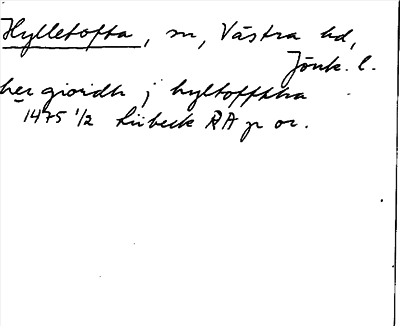 Hylletofta, sn, Västra hd,
Jönk. l.
her giordh j hyltofftha
1475 1/2 Lübeck RA p or.